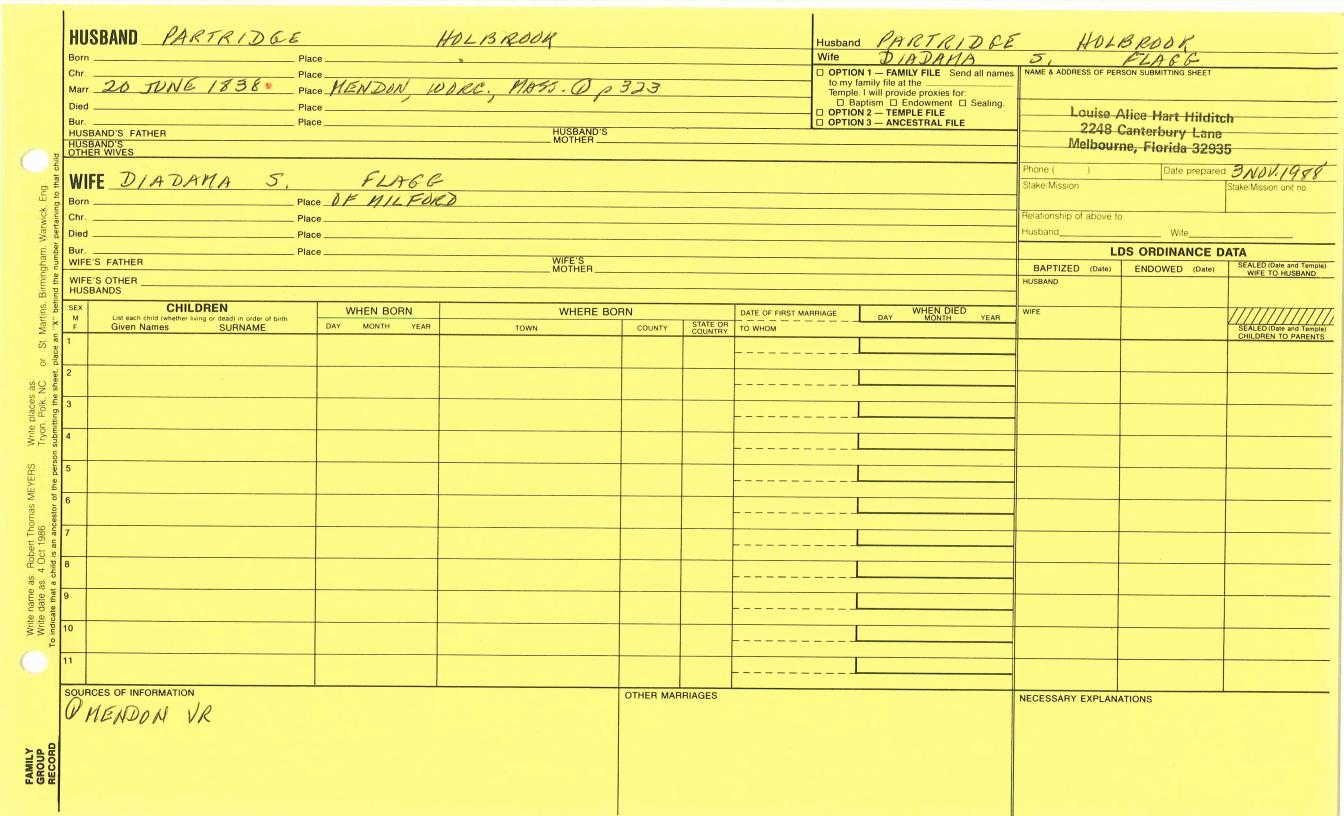 HUSBAND PARTRIDGE HOLBROOK
Born Place
Chr. Place
Marr 20 JUNE 1838 Place MENDON, WORC., MASS. ① p 323
Died Place
Bur. Place
HUSBAND'S FATHER HUSBAND'S MOTHER
HUSBAND'S OTHER WIVES
Husband PARTRIDGE HOLBROOK
Wife DIADAMA S. FLAGG
☐ OPTION 1 — FAMILY FILE Send all names
to my family file at the
Temple. I will provide proxies for:
☐ Baptism ☐ Endowment ☐ Sealing.
☐ OPTION 2 — TEMPLE FILE
☐ OPTION 3 — ANCESTRAL FILE
NAME & ADDRESS OF PERSON SUBMITTING SHEET
Louise Alice Hart Hilditch
2248 Canterbury Lane
Melbourne, Florida 32935
Phone ( ) Date prepared 3 NOV. 1988
Stake/Mission Stake/Mission unit no.
Relationship of above to
Husband Wife
WIFE DIADAMA S. FLAGG
Born Place OF MILFORD
Chr. Place
Died Place
Bur. Place
WIFE'S FATHER WIFE'S MOTHER
WIFE'S OTHER HUSBANDS
LDS ORDINANCE DATA
BAPTIZED (Date) ENDOWED (Date) SEALED (Date and Temple) WIFE TO HUSBAND
HUSBAND
WIFE
SEALED (Date and Temple) CHILDREN TO PARENTS
SEX M F
CHILDREN
List each child (whether living or dead) in order of birth
Given Names SURNAME
WHEN BORN
DAY MONTH YEAR
WHERE BORN
TOWN COUNTY STATE OR COUNTRY
DATE OF FIRST MARRIAGE
TO WHOM
WHEN DIED
DAY MONTH YEAR
1
2
3
4
5
6
7
8
9
10
11
SOURCES OF INFORMATION
① MENDON VR
OTHER MARRIAGES
NECESSARY EXPLANATIONS
Write name as: Robert Thomas MEYERS Write places as: Tryon, Polk, NC or St. Martins, Birmingham, Warwick, Eng.
Write date as: 4 Oct 1986
To indicate that a child is an ancestor of the person submitting the sheet, place an "X" behind the number pertaining to that child
FAMILY
GROUP
RECORD